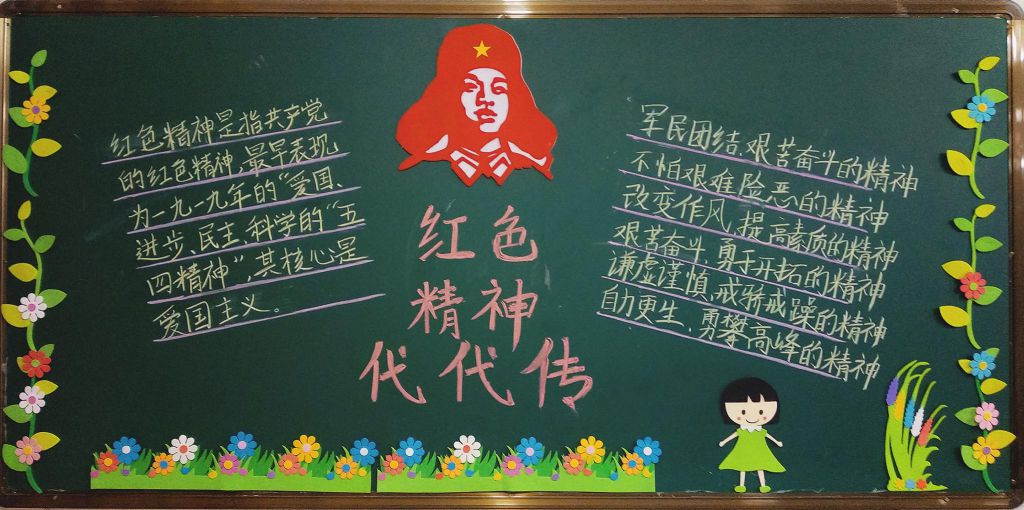 红色精神是指共产党
的红色精神,最早表现
为一九一九年的“爱国、
进步、民主、科学的“五
四精神”,其核心是
爱国主义。
红色
精神
代代传
军民团结、艰苦奋斗的精神
不怕艰难险恶的精神
改变作风,提高素质的精神
艰苦奋斗,勇于开拓的精神
谦虚谨慎、戒骄戒躁的精神
自力更生、勇攀高峰的精神